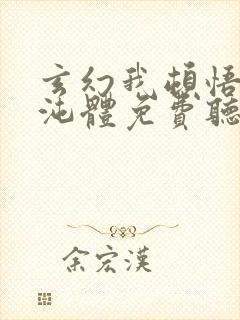 玄幻我頓悟
沌體免費聽
余宏漢